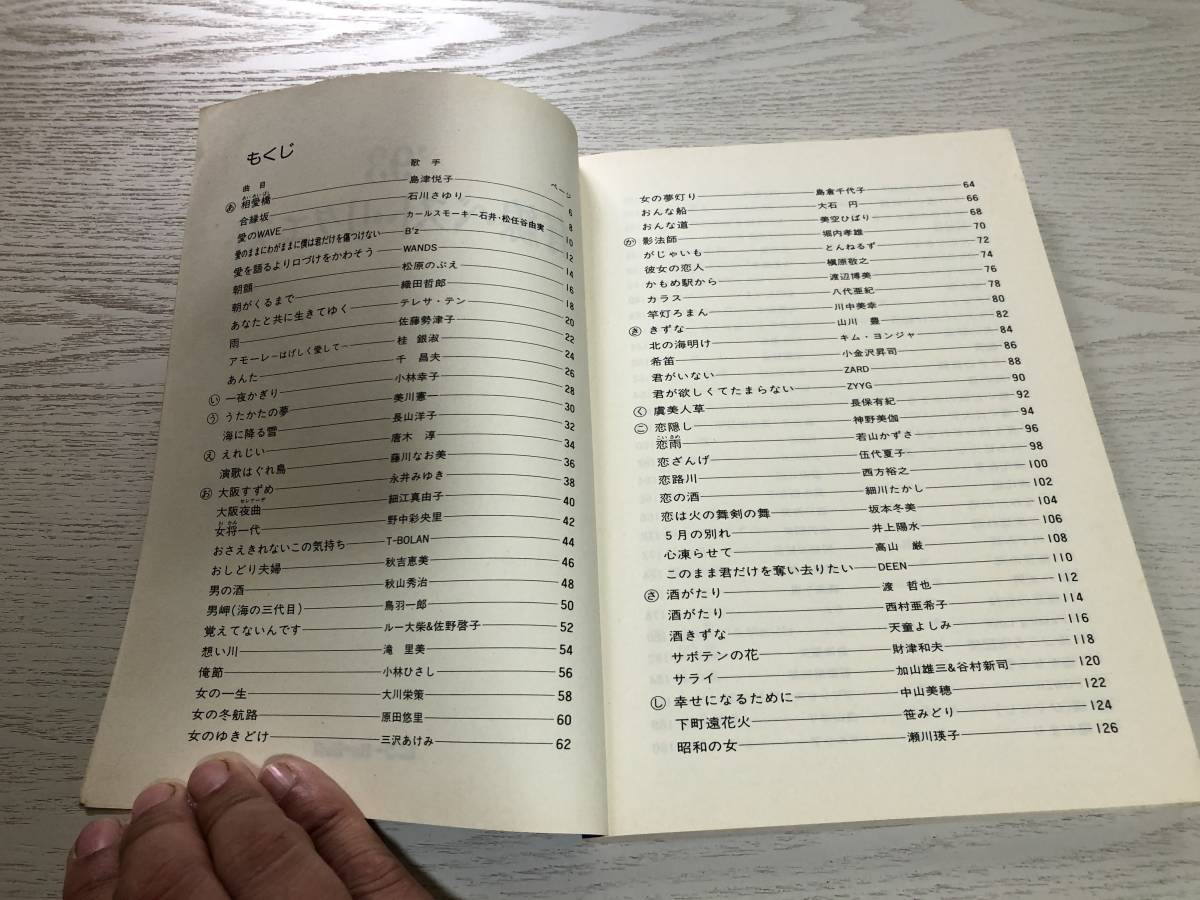 もくじ
曲目 歌手 ページ
あ 相愛橋 島津悦子 6
合縁坂 石川さゆり 8
愛のWAVE カールスモーキー石井・松任谷由実 10
愛のままにわがままに僕は君だけを傷つけない B'z 12
愛を語るより口づけをかわそう WANDS 14
朝顔 松原のぶえ 16
朝がくるまで 織田哲郎 18
あなたと共に生きてゆく テレサ・テン 20
雨 佐藤勢津子 22
アモーレ―はげしく愛して― 桂 銀淑 24
あんた 千 昌夫 26
い 一夜かぎり 小林幸子 28
う うたかたの夢 美川憲一 30
海に降る雪 長山洋子 32
え えれじい 唐木 淳 34
演歌はぐれ鳥 藤川なお美 36
お 大阪すずめ 永井みゆき 38
大阪夜曲 細江真由子 40
女将一代 野中彩央里 42
おさえきれないこの気持ち T-BOLAN 44
おしどり夫婦 秋吉恵美 46
男の酒 秋山秀治 48
男岬(海の三代目) 鳥羽一郎 50
覚えてないんです ルー大柴&佐野啓子 52
想い川 滝 里美 54
俺節 小林ひさし 56
女の一生 大川栄策 58
女の冬航路 原田悠里 60
女のゆきどけ 三沢あけみ 62
女の夢灯り 島倉千代子 64
おんな船 大石 円 66
おんな道 美空ひばり 68
か 影法師 堀内孝雄 70
がじゃいも とんねるず 72
彼女の恋人 槇原敬之 74
かもめ駅から 渡辺博美 76
カラス 八代亜紀 78
竿灯ろまん 川中美幸 80
き きずな 山川 豊 82
北の海明け キム・ヨンジャ 84
希笛 小金沢昇司 86
君がいない ZARD 88
君が欲しくてたまらない ZYYG 90
く 虞美人草 長保有紀 92
こ 恋隠し 神野美伽 94
恋雨 若山かずさ 96
恋ざんげ 伍代夏子 98
恋路川 西方裕之 100
恋の酒 細川たかし 102
恋は火の舞剣の舞 坂本冬美 104
5月の別れ 井上陽水 106
心凍らせて 高山 厳 108
このまま君だけを奪い去りたい DEEN 110
さ 酒がたり 渡 哲也 112
酒がたり 西村亜希子 114
酒きずな 天童よしみ 116
サボテンの花 財津和夫 118
サライ 加山雄三&谷村新司 120
し 幸せになるために 中山美穂 122
下町遠花火 笹みどり 124
昭和の女 瀬川瑛子 126